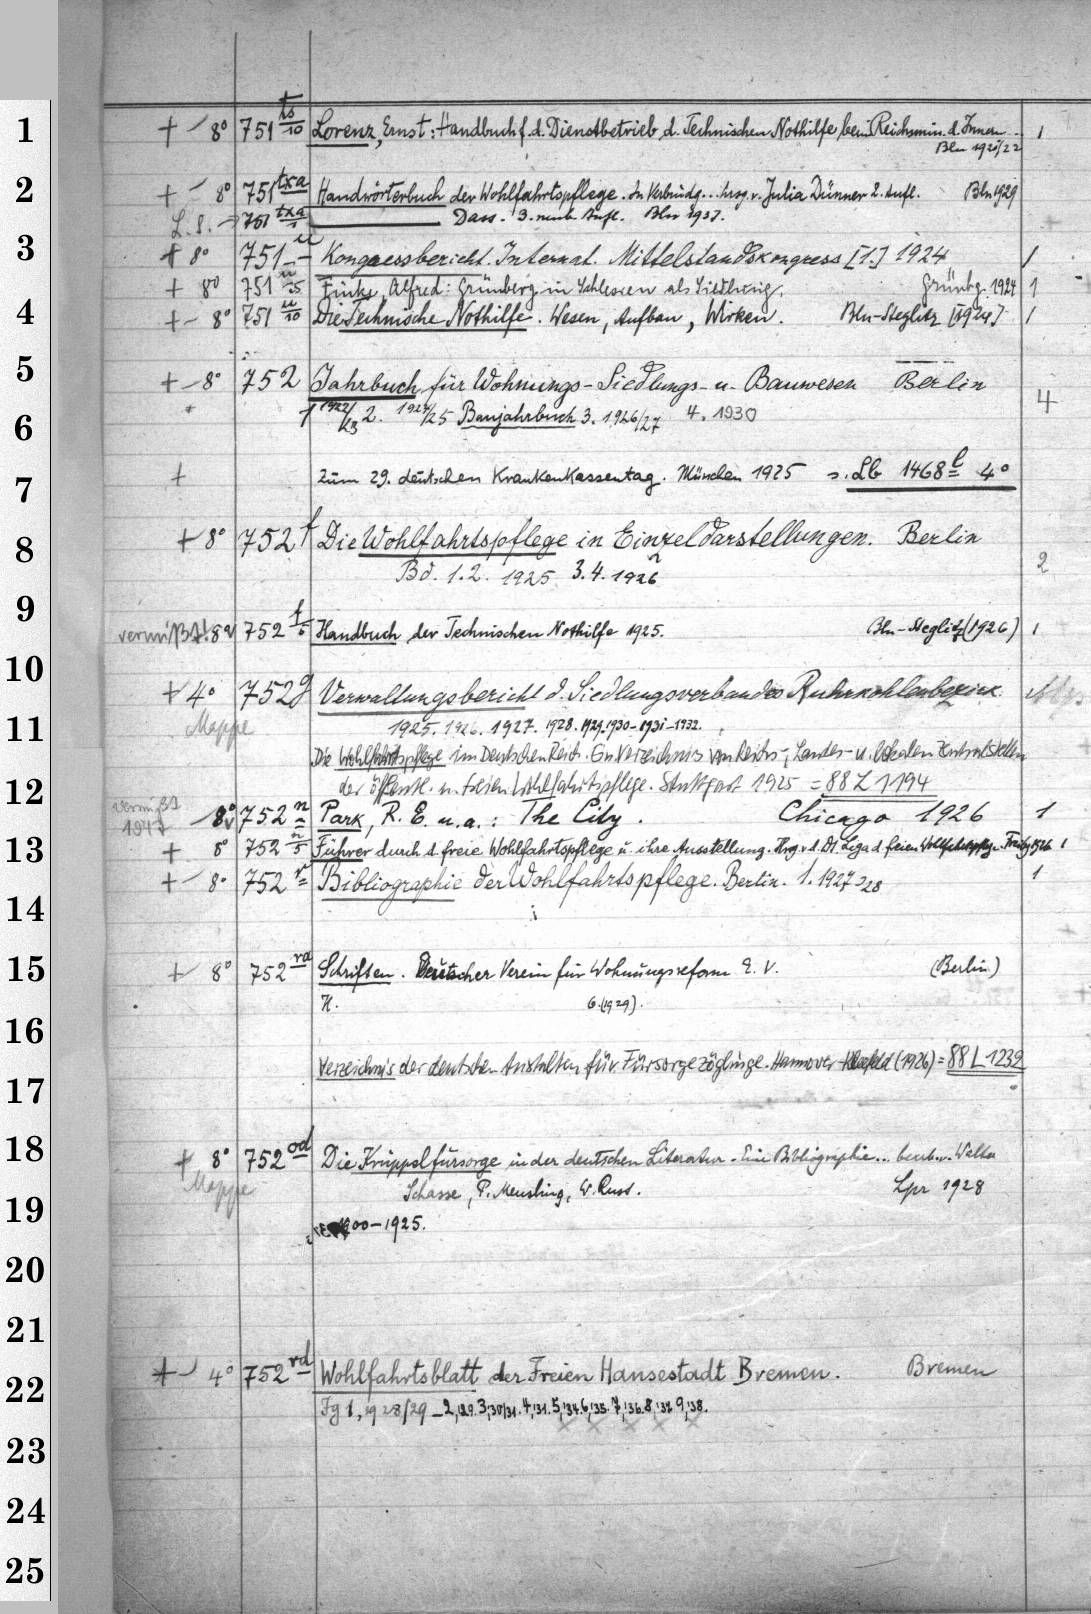 1 + 8° 751 ts/10 Lorenz, Ernst: Handbuch f. d. Dienstbetrieb d. Technischen Nothilfe beim Reichsmin. d. Innern 1
Bln 1921/22
2 + 8° 751 txa Handwörterbuch der Wohlfahrtspflege. In Verbindg... hrsg. v. Julia Dünner 2. Aufl. Bln 1929
L. S. 751 txa/1 Dass. 3. neub. Aufl. Bln 1937.
3 + 8° 751 u Kongressbericht. Internat. Mittelstandskongress [1.] 1924 1
+ 8° 751 u/5 Finke, Alfred: Grünberg in Schlesien als Siedlung. Grünbg. 1924 1
4 + 8° 751 u/10 Die Technische Nothilfe. Wesen, Aufbau, Wirken. Bln-Steglitz [1924] 1
5 + 8° 752 Jahrbuch für Wohnungs- Siedlungs- u. Bauwesen Berlin 4
6 1 1922/23 2. 1924/25 Baujahrbuch 3. 1926/27 4. 1930
7 + Zum 29. deutschen Krankenkassentag. München 1925 s. Lb 1468 l 4°
8 + 8° 752 f Die Wohlfahrtspflege in Einzeldarstellungen. Berlin 2
Bd. 1. 2. 1925 3. 4. 1926
9 vermißt! 8° 752 f/5 Handbuch der Technischen Nothilfe 1925. Bln-Steglitz (1926) 1
10
+ 4° 752 g Verwaltungsbericht d. Siedlungsverbandes Ruhrkohlenbezirk
11 Mappe 1925. 1926. 1927. 1928. 1929. 1930-1931-1932.
Die Wohlfahrtspflege im Deutschen Reich. Ein Verzeichnis von Reichs-, Landes- u. lokalen Zentralstellen
12 der öffentl. u. freien Wohlfahrtspflege. Stuttgart 1925 = 88 L 1194
vermißt 1947 8° 752 n Park, R. E. u. a.: The City. Chicago 1926 1
13 + 8° 752 n/5 Führer durch d. freie Wohlfahrtspflege u. ihre Ausstellung. Hrg. v. d. Dt. Liga d. freien Wohlfahrtspflege 1926 1
+ 8° 752 r Bibliographie der Wohlfahrtspflege. Berlin. 1. 1927-28 1
14
15 + 8° 752 ra Schriften. Deutscher Verein für Wohnungsreform E. V. (Berlin)
H. 6. (1929).
16
17 Verzeichnis der deutschen Anstalten für Fürsorgezöglinge. Hannover-Kleefeld (1926) = 88 L 1232
18 + 8° 752 od Die Krüppelfürsorge in der deutschen Literatur. Eine Bibliographie... bearb. v. Walter
Mappe Schasse, P. Meusling, W. Russ. Lpz 1928
19 1900-1925.
20
21
22 + 4° 752 rd Wohlfahrtsblatt der Freien Hansestadt Bremen. Bremen
Jg 1, 1928/29 - 2,129. 3,30/31. 4,131. 5,134. 6,135. 7,136. 8,137 9,138.
23
24
25